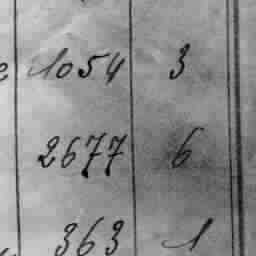 1054 3
2677 6
363 1